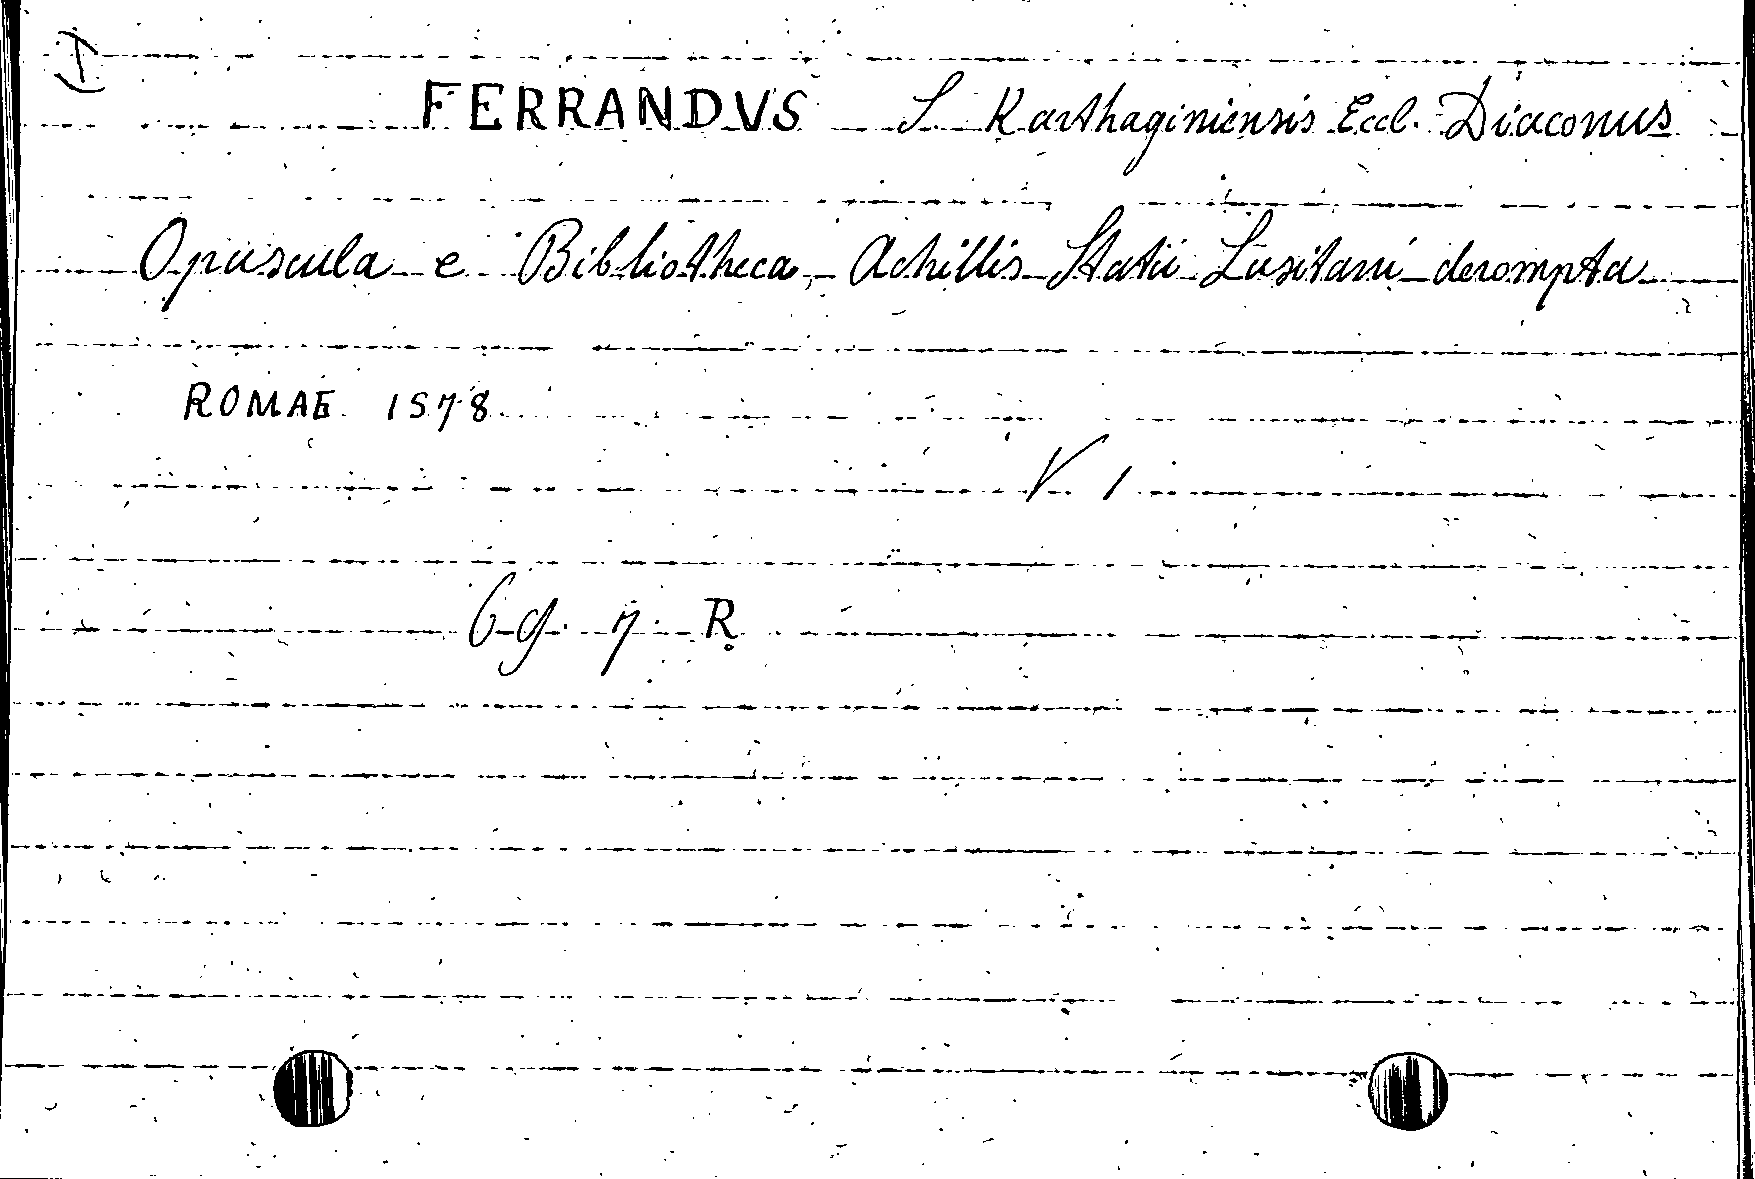 I
FERRANDVS S Karthaginiensis Eccl. Diaconus
Opuscula e Bibliotheca, Achillis Statii Lusitani derompta
ROMAE 1578
V 1
6 g. 7. R